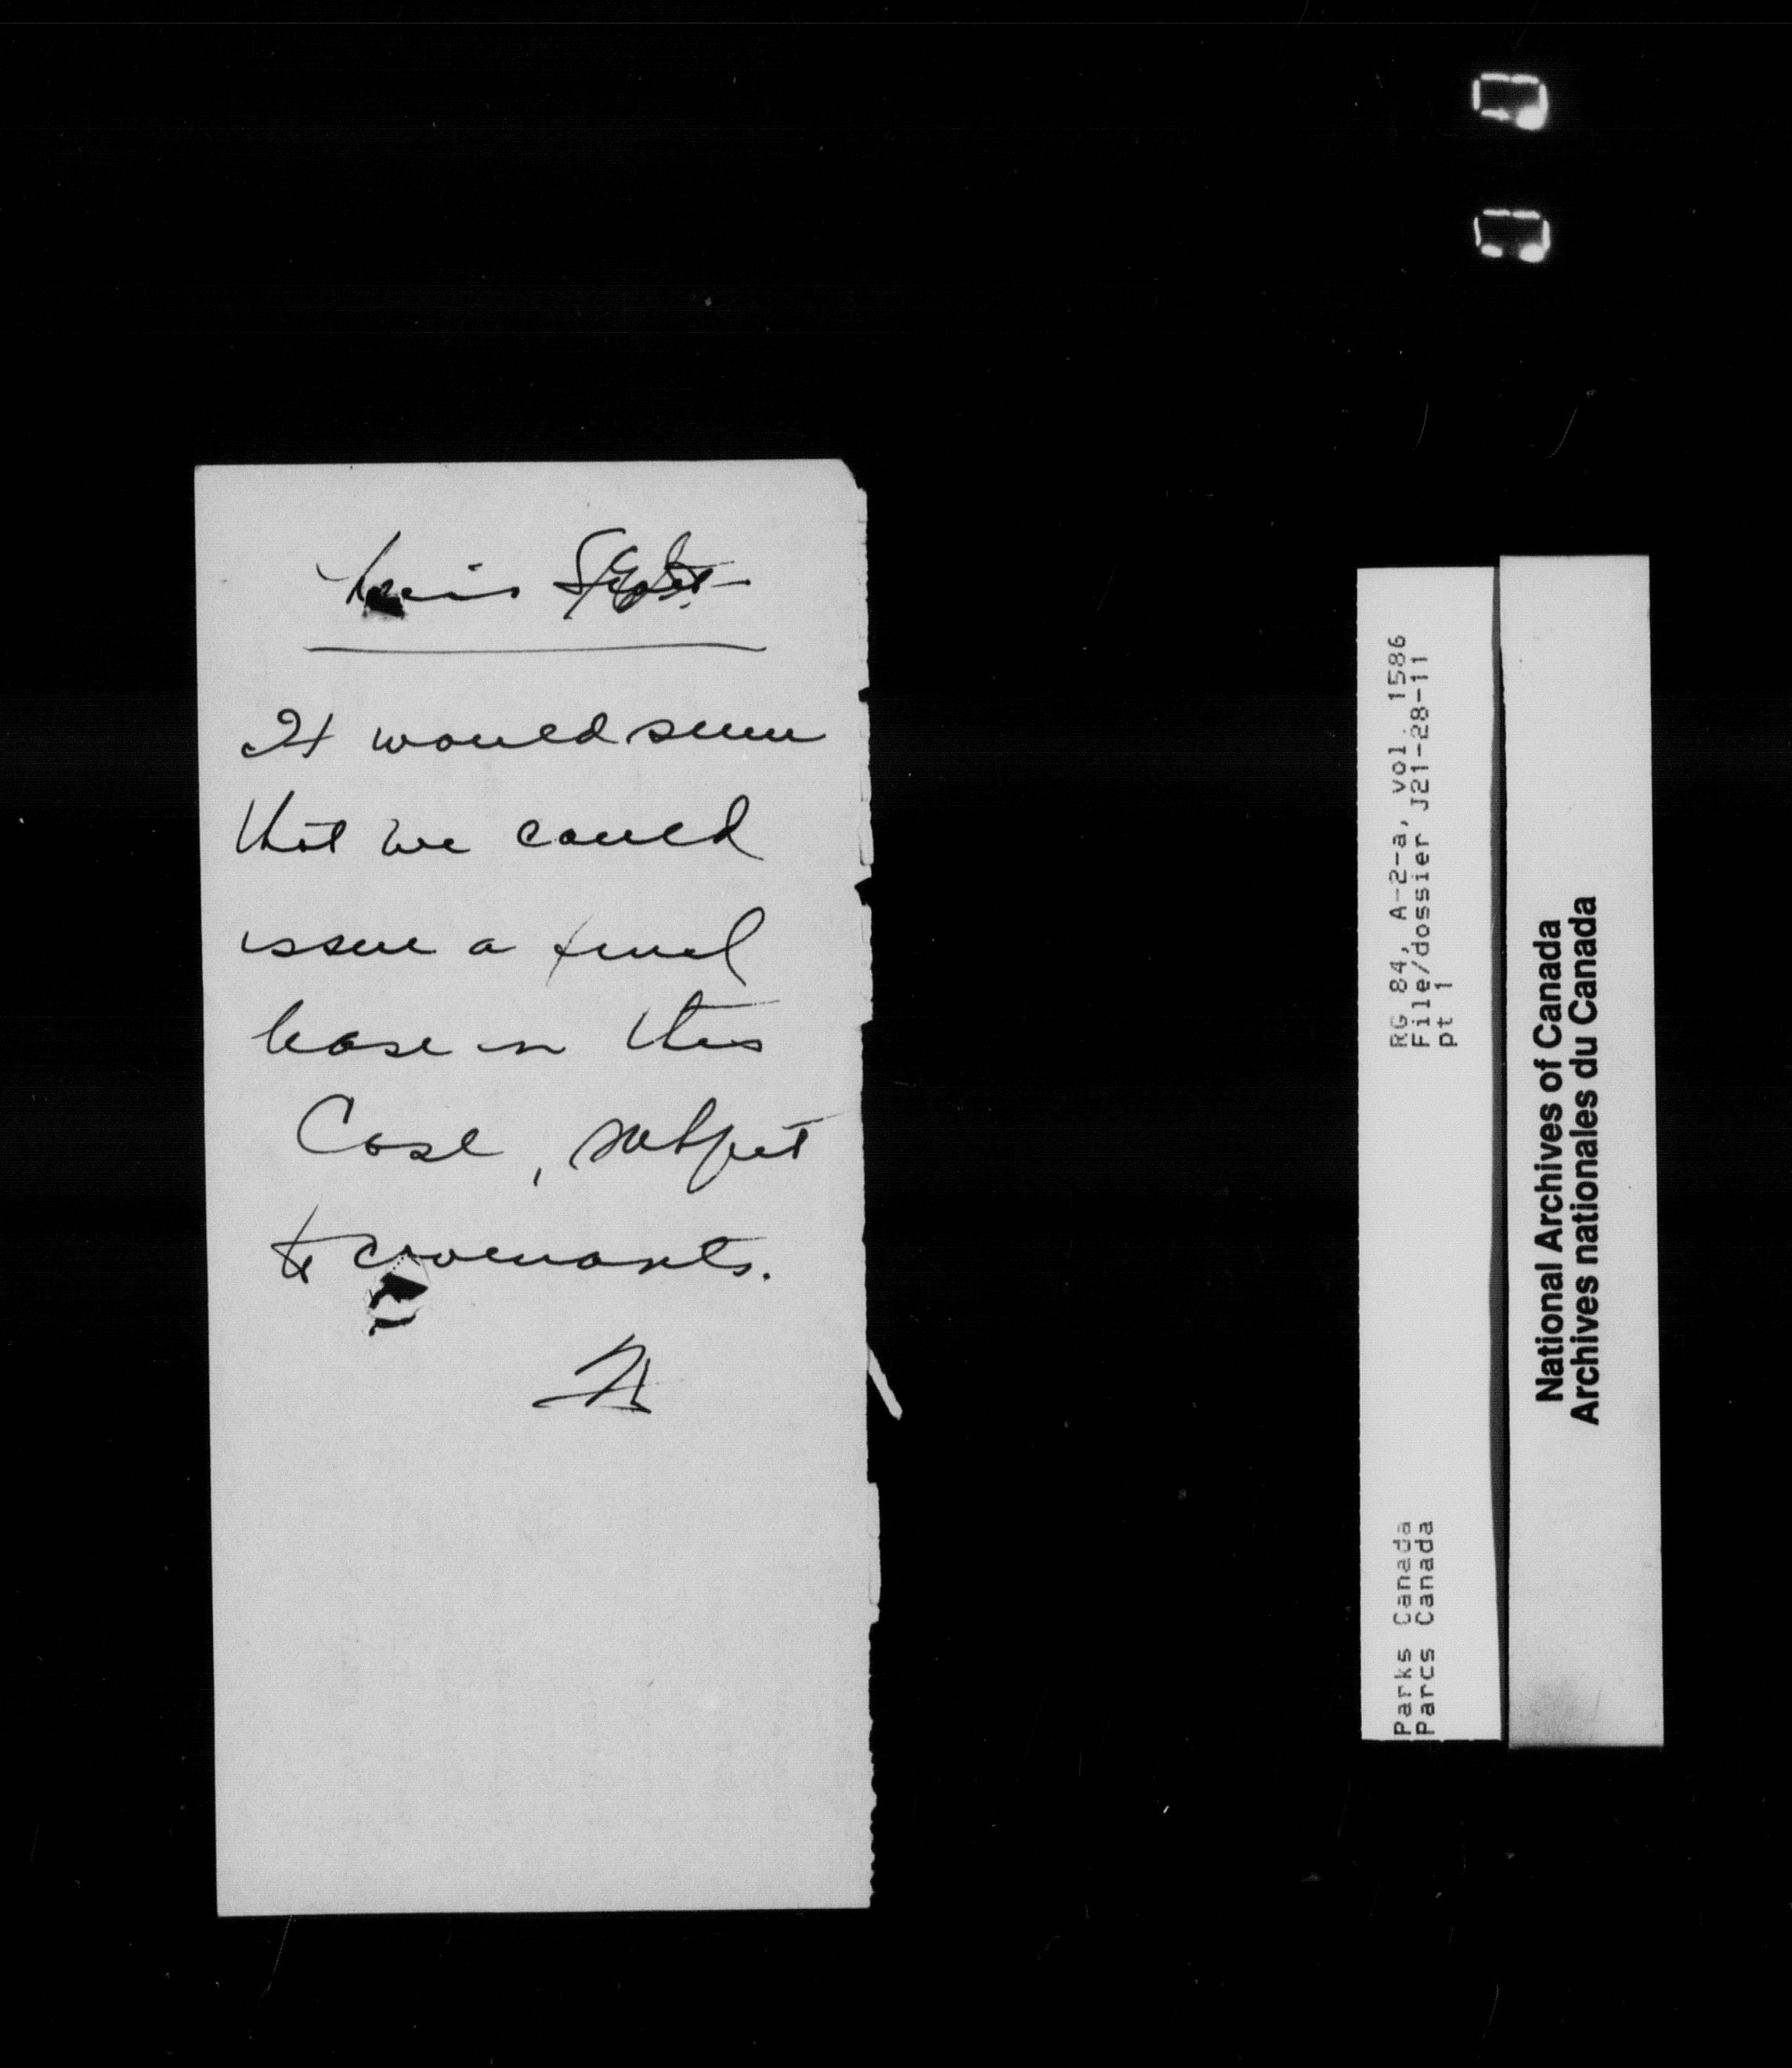 Miss
It would seem
that we could
issue a final
lease in this
Case, subject
to covenants.
RG 84, A-2-a, vol. 1586
File/dossier J21-28-11
pt 1
Parks Canada
Parcs Canada
National Archives of Canada
Archives nationales du Canada